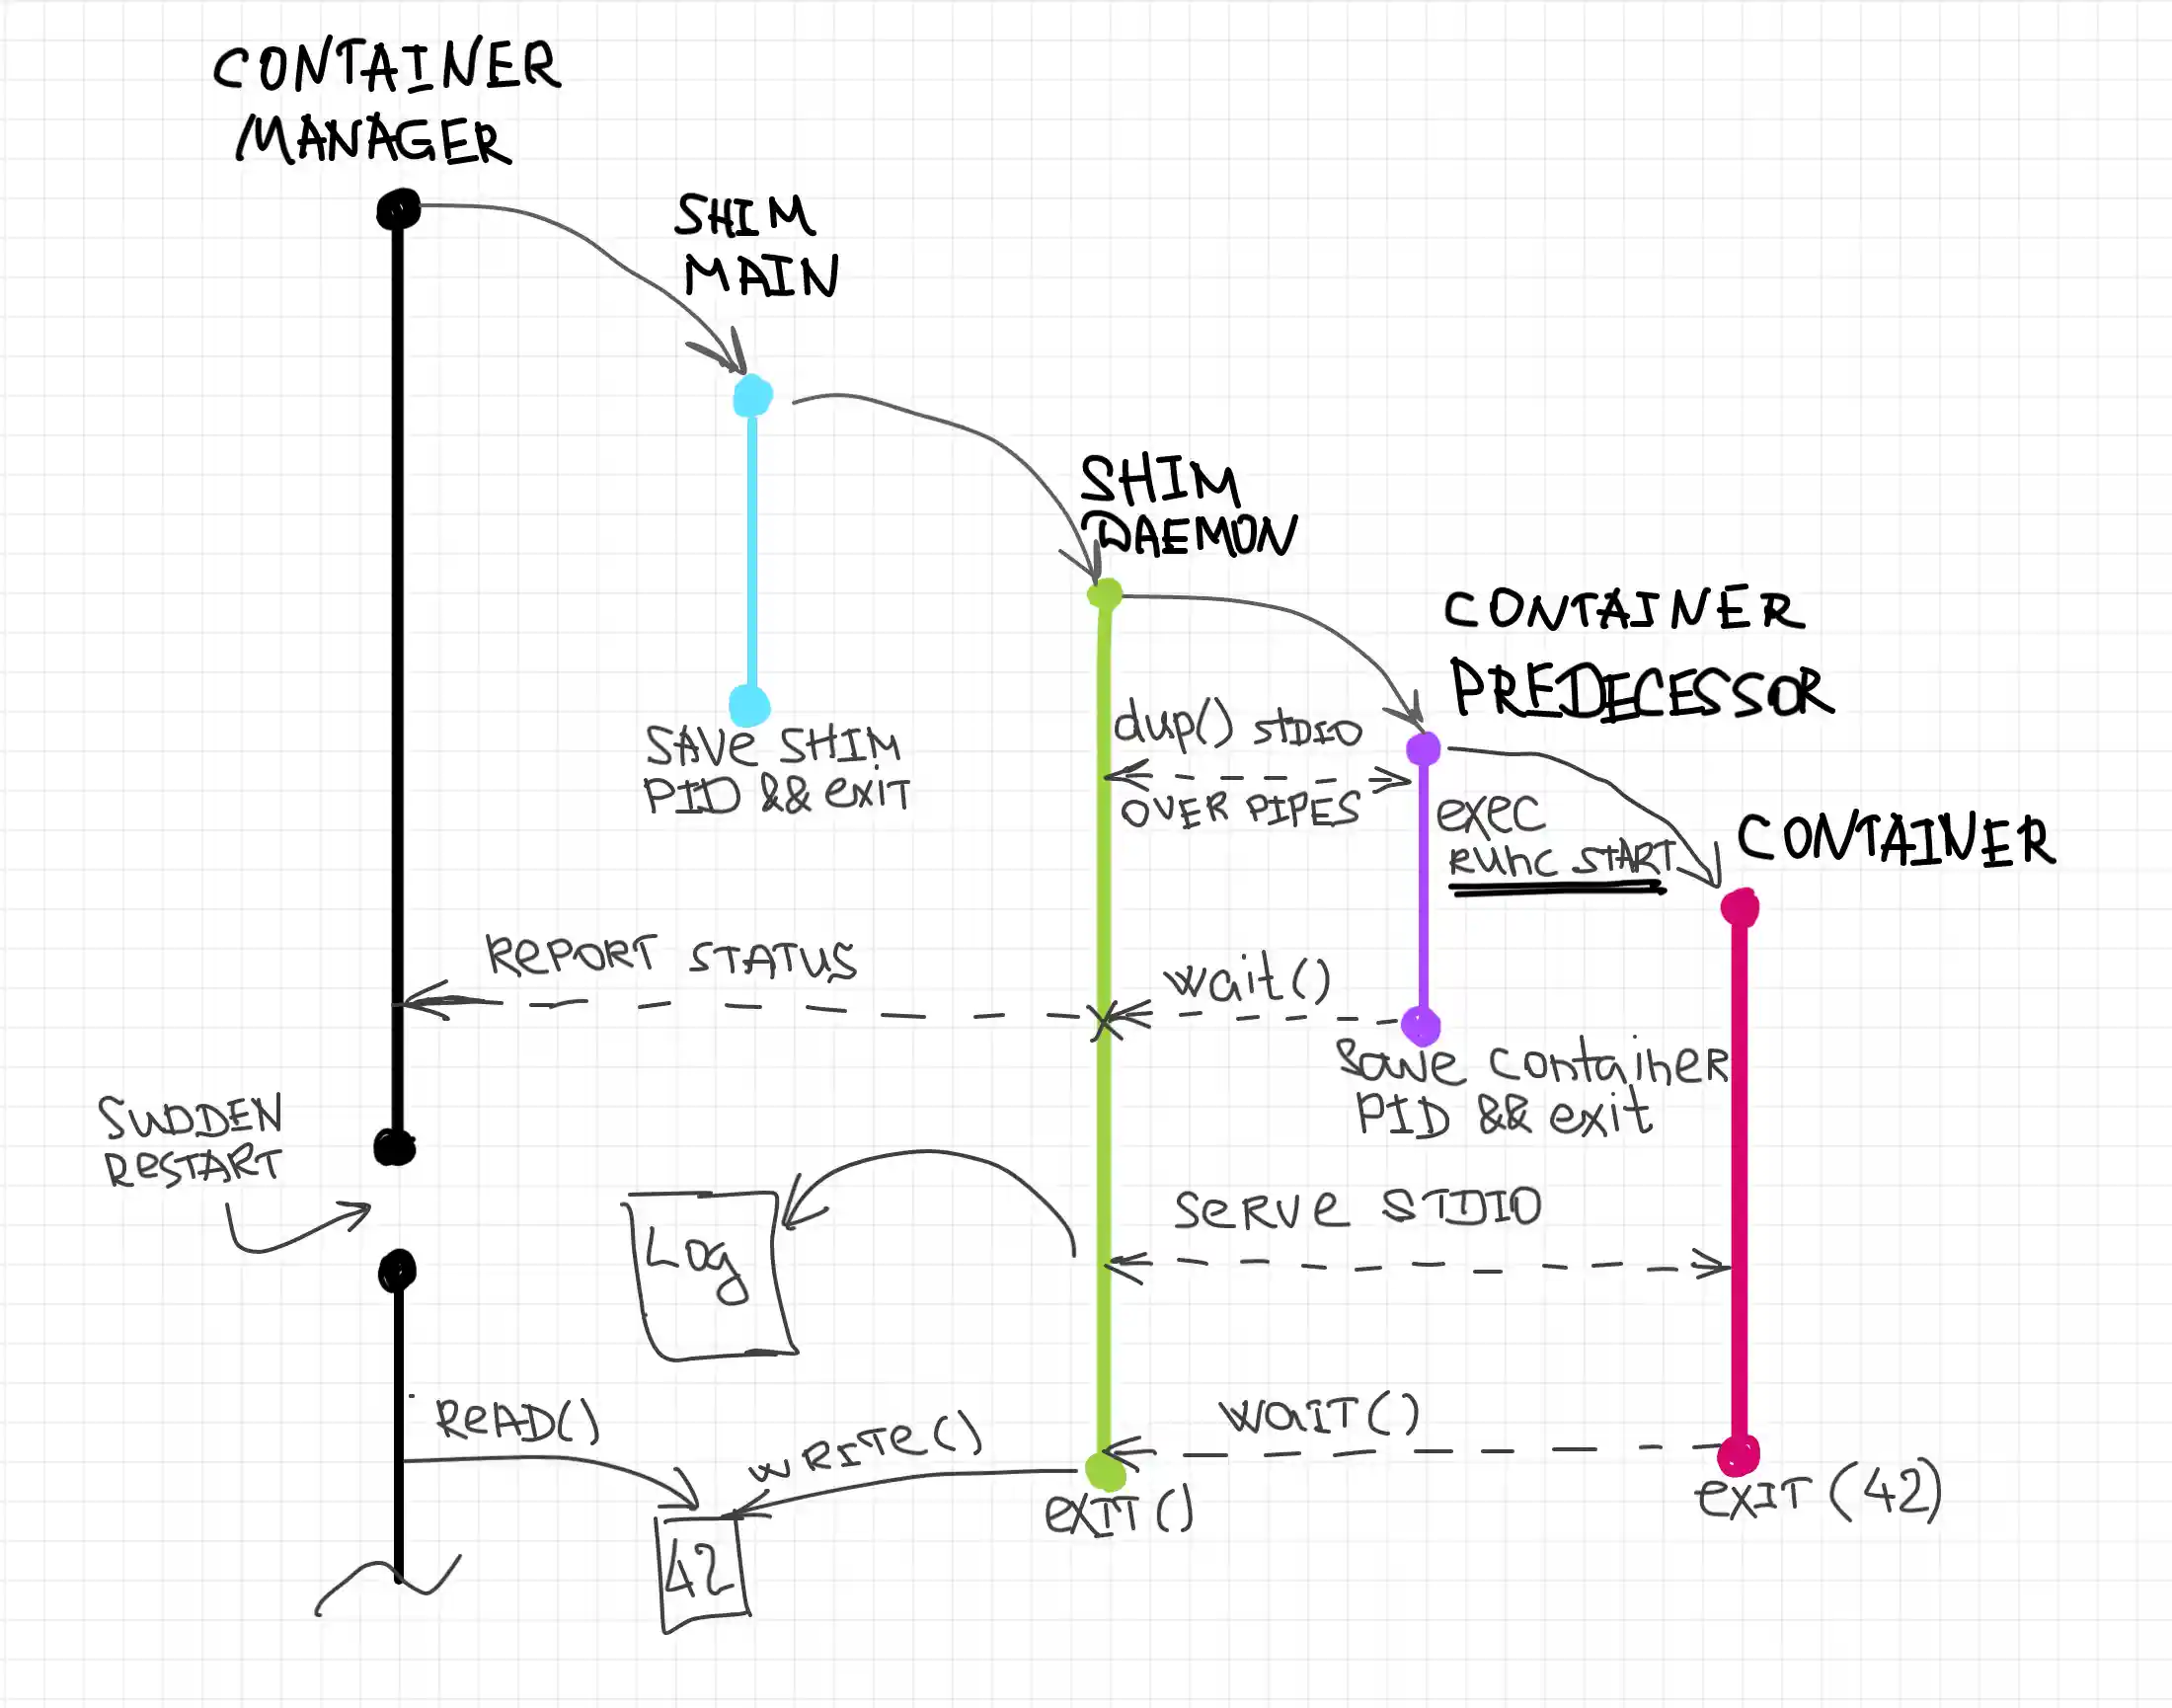 CONTAINER
MANAGER
SHIM
MAIN
SHIM
DAEMON
CONTAINER
PREDECESSOR
dup() STDIO
OVER PIPES
SAVe SHIM
PID && exit
exec
runc START
CONTAINER
RePORT STATUS
wait()
Save container
PID && exit
SUDDEN
ReSTART
Log
Serve STDIO
ReAD()
WRITe()
WaIT()
exIT()
exIT(42)
42